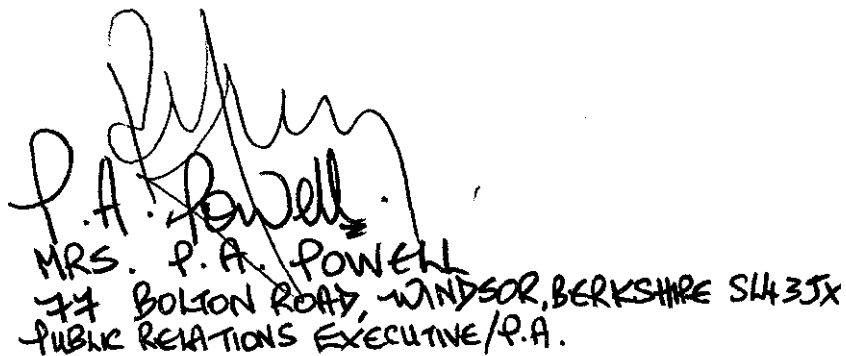 P.A. Powell.
MRS. P.A. POWELL
77 BOLTON ROAD, WINDSOR, BERKSHIRE SL4 3JX
PUBLIC RELATIONS EXECUTIVE/P.A.